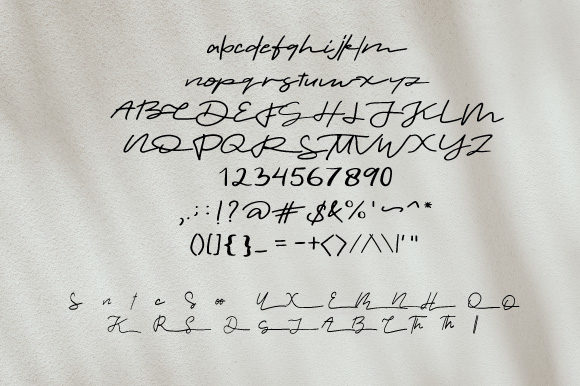 abcdefghijklm
nopqrstuvwxyz
ABCDEFGHIJKLM
NOPQRSTUVWXYZ
1234567890
,.;:!?@#$&%'~^*
()[]{}_=-+<>/\\|'"
S n t c S oo Y X E M N H O Q
K R S D G J A B L Th Th I